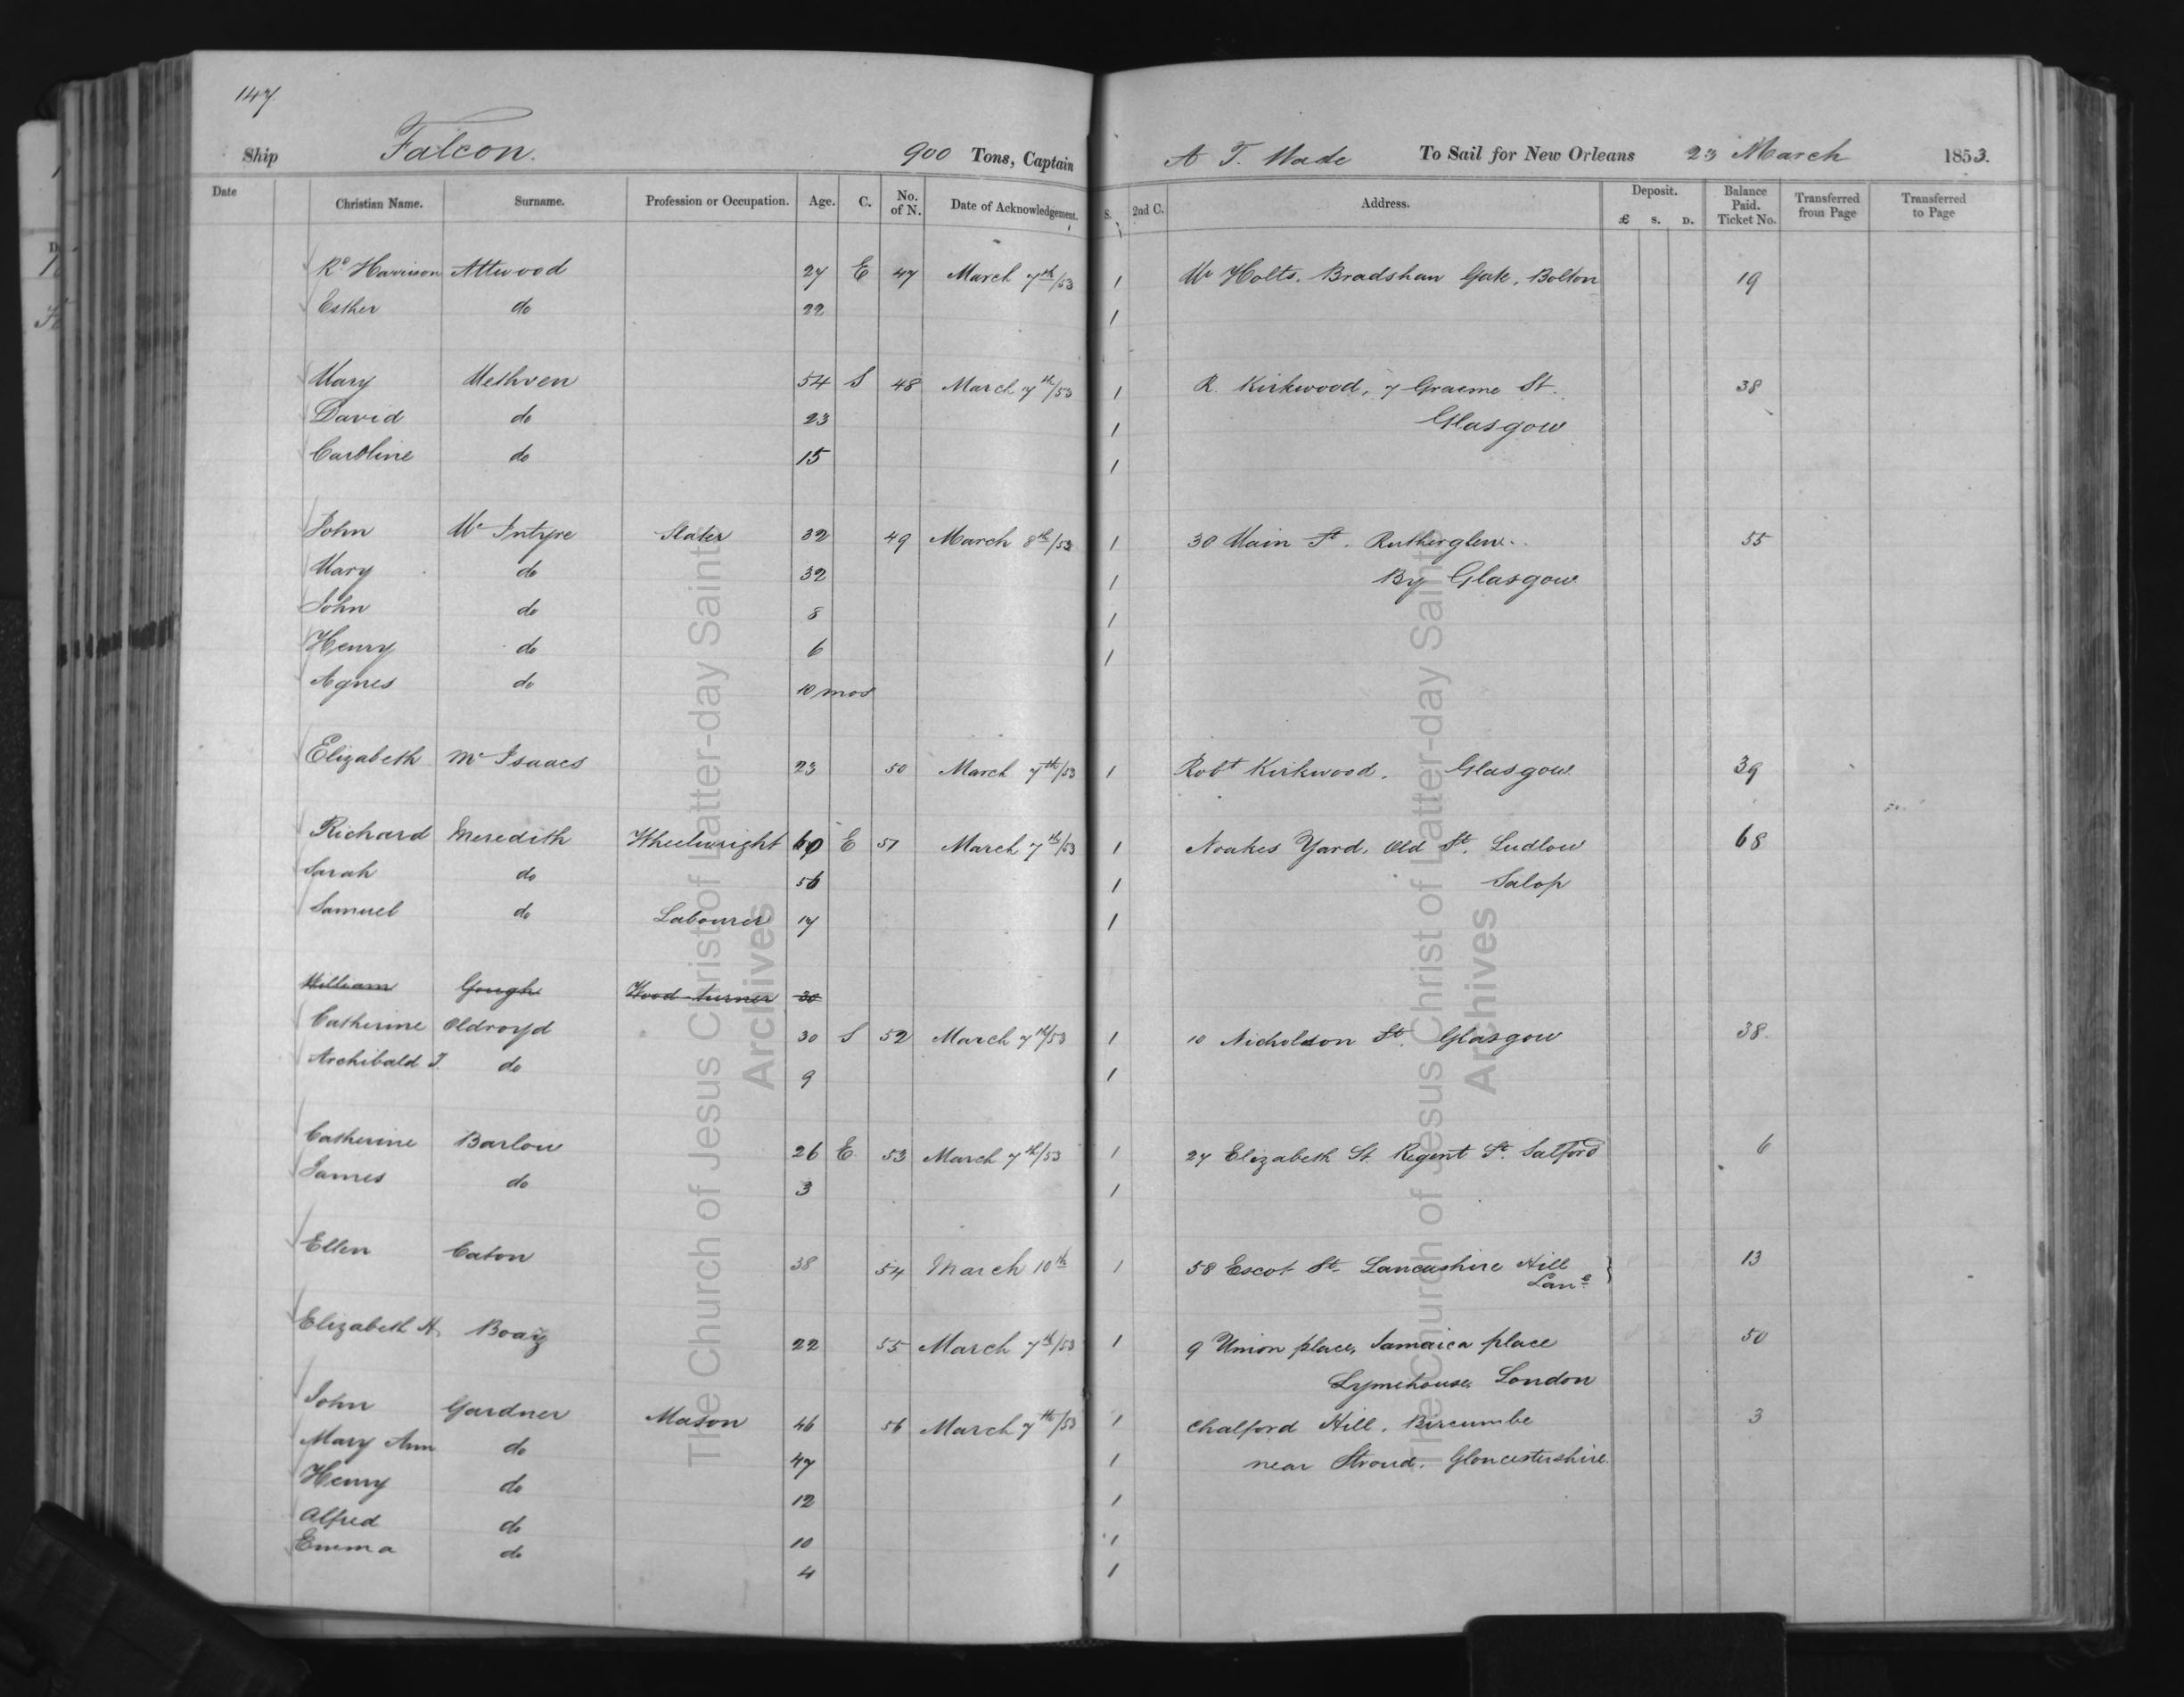 147
Ship Falcon. 900 Tons, Captain A T. Wade To Sail for New Orleans 23 March 1853.
Date Christian Name. Surname. Profession or Occupation. Age. C. No. of N. Date of Acknowledgement. S. 2nd C. Address. Deposit. £ S. D. Balance Paid. Ticket No. Transferred from Page Transferred to Page
Rd Harrison Attwood 27 E 47 March 7th/53 1 Mr Holts. Bradshaw Gate, Bolton 19
Esther do 22 1
Mary Methven 54 S 48 March 7th/53 1 R. Kirkwood, 7 Graeme St. 38
David do 23 1 Glasgow
Caroline do 15 1
John Mc Intyre Slater 32 49 March 8th/53 1 30 Main St. Rutherglen. 55
Mary do 32 1 By Glasgow
John do 8 1
Henry do 6 1
Agnes do 10 mos
Elizabeth Mc Isaacs 23 50 March 7th/53 1 Robt Kirkwood, Glasgow 39
Richard Meredith Wheelwright 60 E 51 March 7th/53 1 Noakes Yard, Old St. Ludlow 68
Sarah do 56 1 Salop
Samuel do Labourer 17 1
William Gough Wood-turner 30
Catherine Oldroyd 30 S 52 March 7th/53 1 10 Nicholson St. Glasgow 38.
Archibald T. do 9 1
Catherine Barlow 26 E 53 March 7th/53 1 27 Elizabeth St. Regent St. Salford 6
James do 3 1
Ellen Caton 38 54 March 10th 1 58 Escot St. Lancashire Hill 13
Lane
Elizabeth H. Boaz 22 55 March 7th/53 1 9 Union place, Jamaica place 50
Lymehouse, London
John Gardner Mason 46 56 March 7th/53 1 Chalford Hill, Bircumbe 3
Mary Ann do 47 1 near Stroud. Gloucestershire.
Henry do 12 1
Alfred do 10 1
Emma do 4 1
The Church of Jesus Christ of Latter-day Saints
Archives
The Church of Jesus Christ of Latter-day Saints
Archives